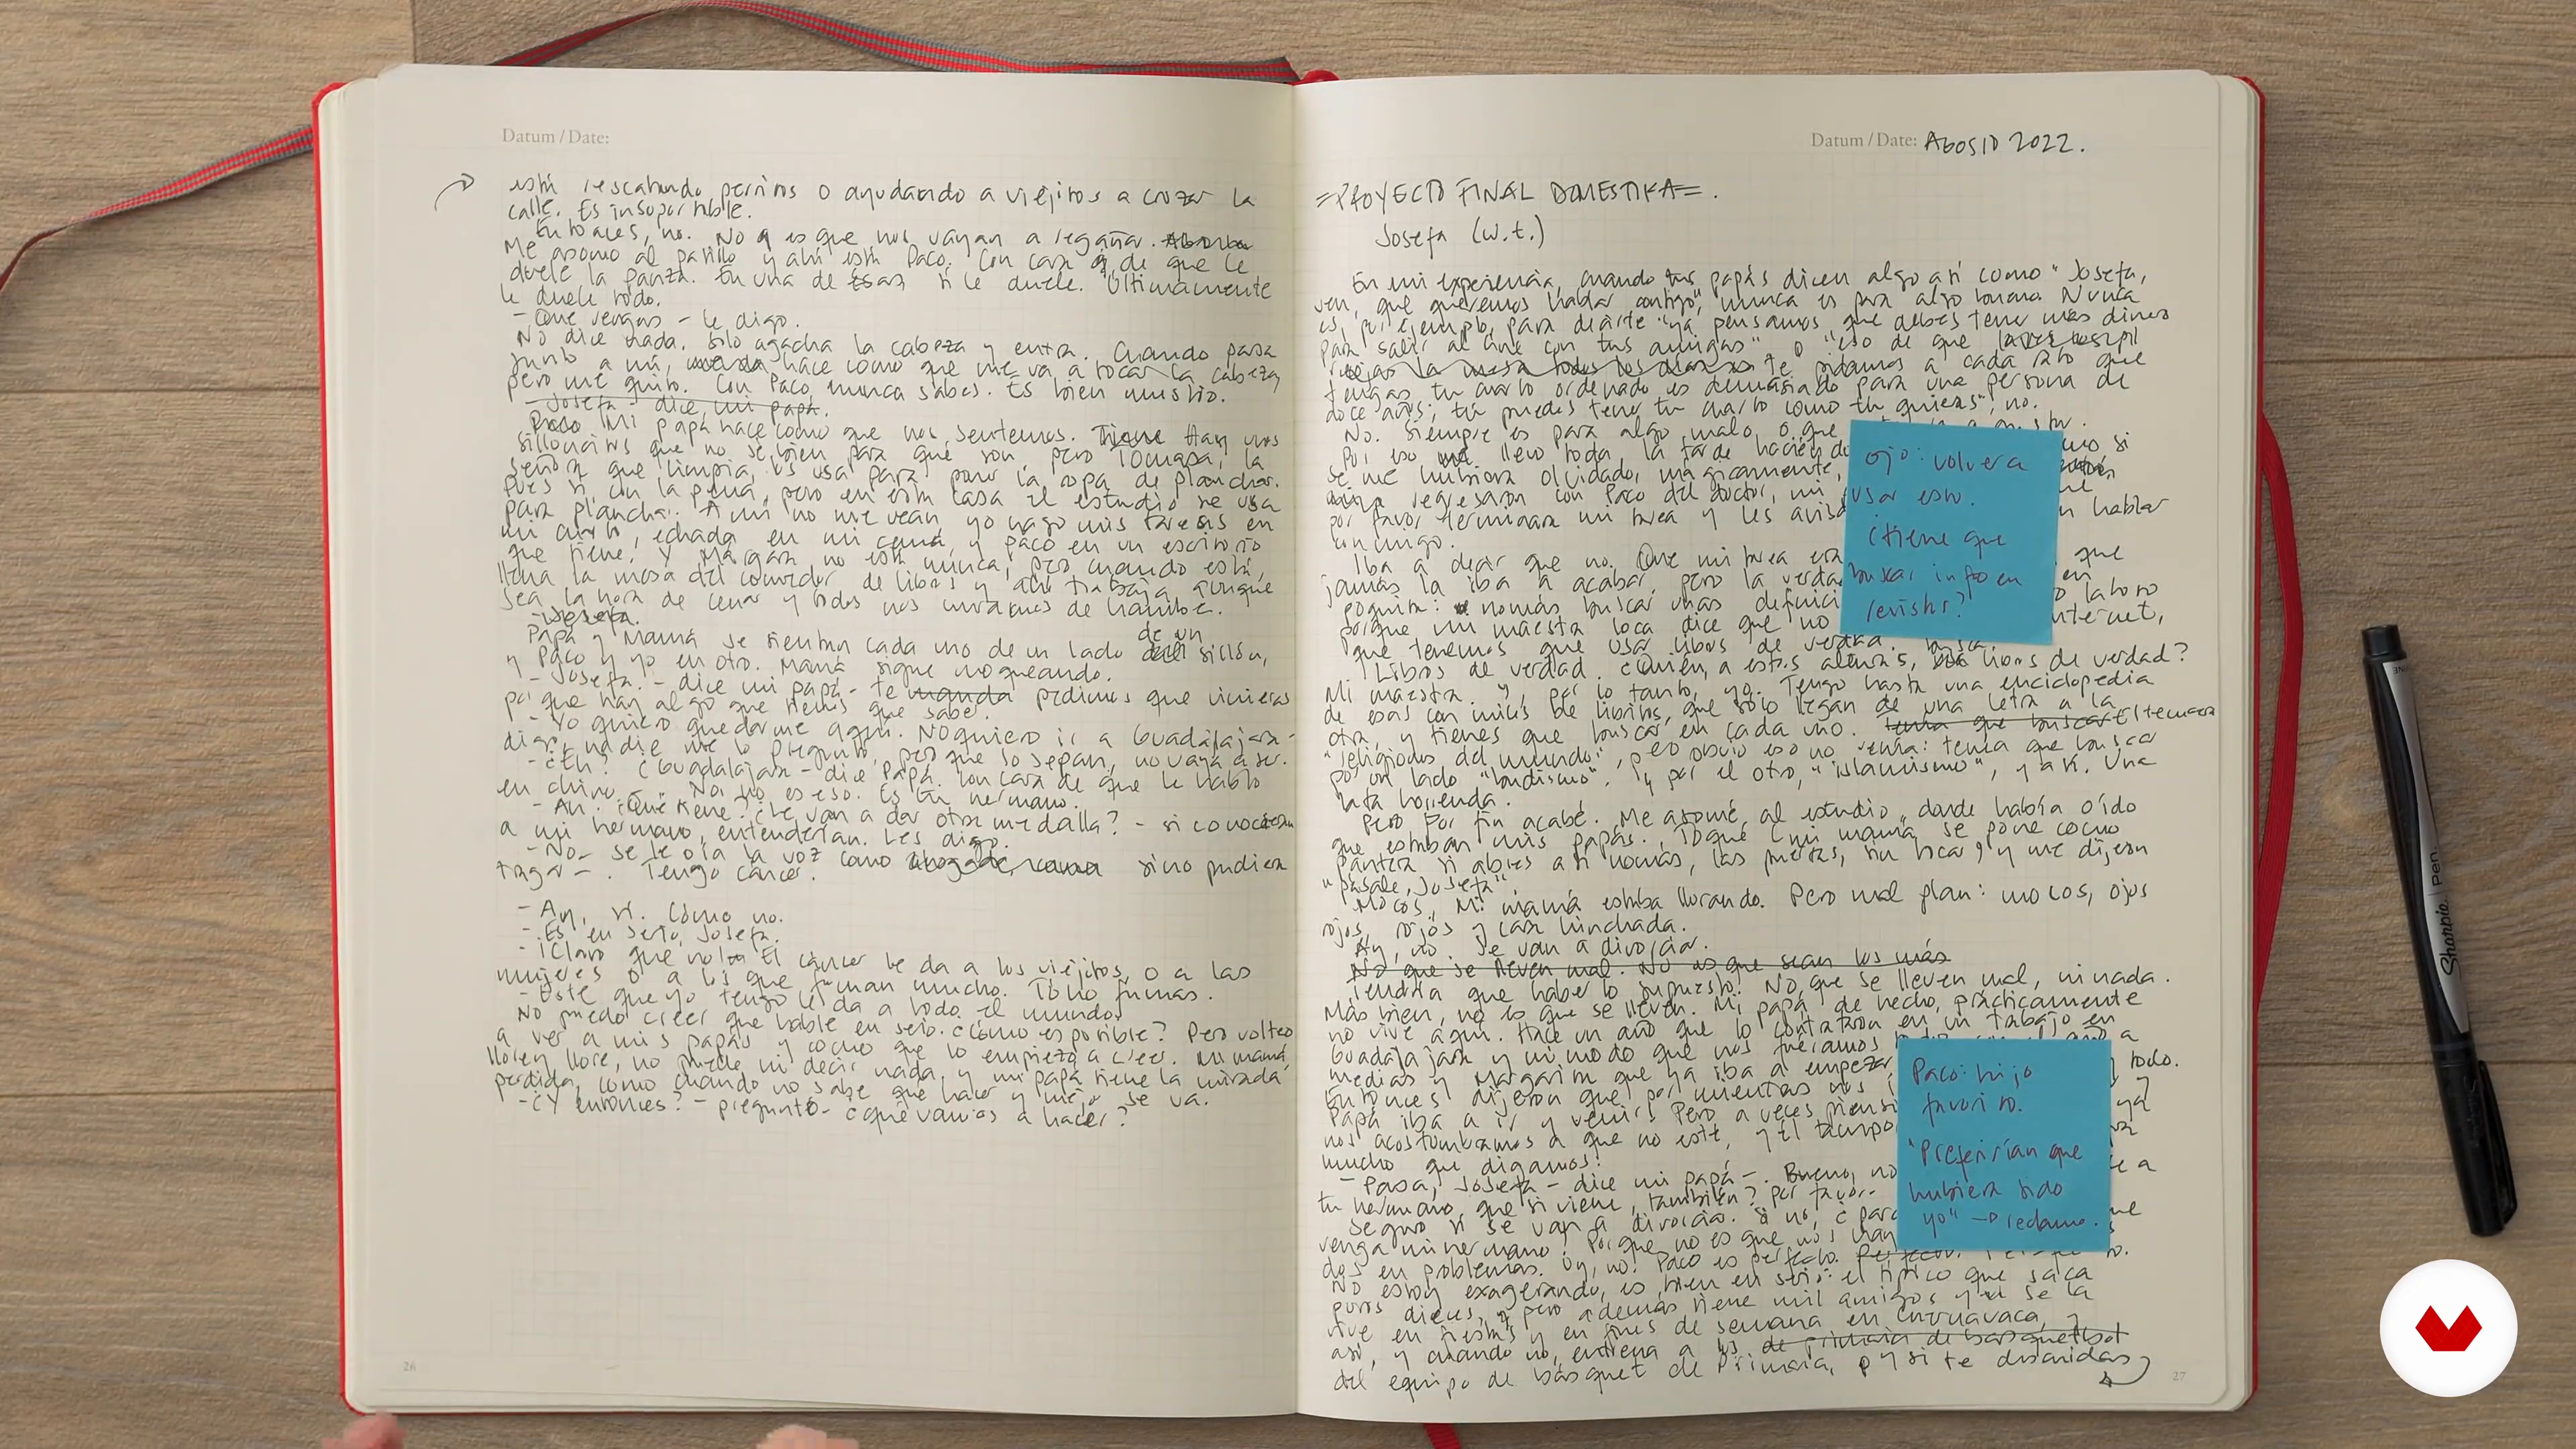 Datum / Date:
está rescatando perritos o ayudando a viejitos a cruzar la
calle. Es insoportable.
Entonces, no. No es que nos vayan a regañar.
Me asomo al pasillo y ahí está Paco. Con cara de que le
duele la panza. En una de ésas sí le duele. Últimamente
le duele todo.
- Que vengas - le digo.
No dice nada. Sólo agacha la cabeza y entra. Cuando pasa
junto a mí, hace como que me va a tocar la cabeza
pero me quito. Con Paco, nunca sabes. Es bien
- Josefa - dice mi papá.
Mi papá hace como que nos sentemos. Hay unos
silloncitos que no sé bien para qué son, pero Tomasa, la
señora que limpia, los usa para poner la ropa de planchar.
Pues sí, un la pena, pero en esta casa el estudio se usa
para planchar. A mí no me vean, yo hago mis tareas en
mi cuarto, echada en mi cama, y Paco en un escritorio
que tiene. Y Margara no está nunca, pero cuando está,
llena la mesa del comedor de libros y ahí trabaja aunque
sea la hora de cenar y todos nos muramos de hambre.
- Josefa.
Papá y Mamá se sientan cada uno de un lado de un sillón,
y Paco y yo en otro. Mamá sigue moqueando.
- Josefa. - dice mi papá - te pedimos que vinieras
porque hay algo que tienes que saber.
- Yo quiero quedarme aquí. No quiero ir a Guadalajara -
digo, nadie me lo preguntó, pero que lo sepan, no vaya a ser.
- ¿Eh? ¿Guadalajara - dice Papá. Con cara de que le hablo
en chino - . No, no es eso. Es tu hermano.
- Ah. ¿Qué tiene? ¿Le van a dar otra medalla? - si conocieran
a mi hermano, entenderían. Les digo.
- No - se le oía la voz como si no pudiera
tragar - . Tengo cáncer.
- Ay, sí. Cómo no.
- Es en serio, Josefa.
- ¡Claro que no! El cáncer le da a los viejitos, o a las
mujeres o a los que fuman mucho. Tú no fumas.
- Este que yo tengo le da a todo el mundo.
No puedo creer que hable en serio. ¿Cómo es posible? Pero volteo
a ver a mis papás y como que lo empiezo a creer. Mi mamá
llore y llore, no puede ni decir nada, y mi papá tiene la mirada
perdida, como cuando no sabe que hacer y mejor se va.
- ¿Y entonces? - pregunté - ¿qué vamos a hacer?
26
Datum / Date: Agosto 2022.
= PROYECTO FINAL DOMESTIKA = .
Josefa (w.t.)
En mi experiencia, cuando tus papás dicen algo así como "Josefa,
ven, que queremos hablar contigo", nunca es para algo bueno. Nunca
es, por ejemplo, para decirte "ya pensamos que debes tener más dinero
para salir al cine con tus amigas" o "eso de que
te pidamos a cada rato que
tengas tu cuarto ordenado es demasiado para una persona de
doce años; tú puedes tener tu cuarto como tú quieras", no.
No. Siempre es para algo malo o que
Por eso llevo toda la tarde haciendo
se me hubiera olvidado, mágicamente,
regresaron con Paco del doctor, mi
por favor terminara mi tarea y les avisa hablar
conmigo.
Iba a decir que no. Que mi tarea era que
jamás la iba a acabar, pero la verdad
poquita: nomás buscar unas defini
porque mi maestra loca dice que no internet,
que tenemos que usar libros de verdad.
Libros de verdad. ¿Quién, a estas alturas, usa libros de verdad?
Mi maestra. Y, por lo tanto, yo. Tengo hasta una enciclopedia
de esas con miles de libritos, que sólo llegan de una letra a la
otra, y tienes que buscar en cada uno. El tema era
"religiones del mundo", pero obvio eso no venía: tenía que buscar
por un lado "budismo", y por el otro, "islamismo", y así. Una
lata horrenda.
Pero por fin acabé. Me asomé al estudio, donde había oído
que estaban mis papás. Toqué (mi mamá se pone como
pantera si abres así nomás, las puertas, sin tocar) y me dijeron
"pásale, Josefa".
Mocos. Mi mamá estaba llorando. Pero mal plan: mocos, ojos
rojos, rojos y cara hinchada.
Ay, no. Se van a divorciar.
No que se lleven mal. No es que sean los más
Tendría que haberlo supuesto. No, que se lleven mal, ni nada.
Más bien, no es que se lleven. Mi papá de hecho, prácticamente
no vive aquí. Hace un año que lo contrataron en un trabajo en
Guadalajara y ni modo que nos fuéramos a
medias y Margarita que ya iba a empezar, todo.
Entonces dijeron que por mientras nos
Papá iba a ir y venir. Pero a veces siento ya
nos acostumbramos a que no esté, y el tiempo
mucho que digamos.
- Pasa, Josefa - dice mi papá - . Bueno, no a
tu hermano, que si viene, también? por favor.
Seguro sí se van a divorciar. Si no, ¿para que
venga mi hermano? Porque no es que nos hay
dos en problemas. Uy, no. Paco es perfecto.
No estoy exagerando, es bien en serio: el típico que saca
puros dieces, pero además tiene mil amigos y se la
vive en fiestas y en fines de semana en Cuernavaca, y
así, y cuando no, entrena a los de primaria de basquetbol
del equipo de básquet de Primaria, y si te descuidas
27
Ojo: volver a
usar esto.
¿tiene que
buscar info en
revistas?
Paco: hijo
favorito.
"Preferirían que
hubiera sido
yo" → reclamo.
Sharpie Pen.